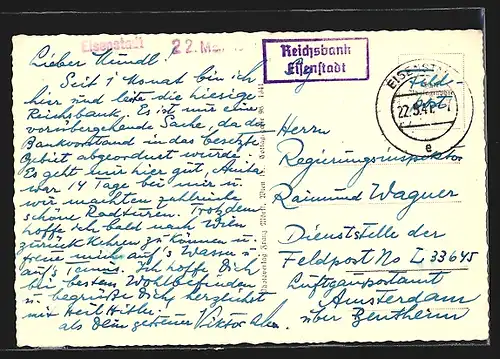 Eisenstadt
22. Mai
Reichsbank
Eisenstadt
EISENSTADT
22.5.41
e
Feld-
post
Lieber Mundl!
Seit 1 Monat bin ich
hier und leite die hiesige
Reichsbank. Es ist nur eine
vorübergehende Sache, da der
Bankvorstand in das besetzte
Gebiet abgeordnet wurde.
Es geht mir hier gut,
war 14 Tage bei mir u.
wir machten zahlreiche
schöne Radturen. Trotzdem
hoffe ich bald nach Wien
zurückkehren zu können u.
freue mich auf's Wasser u.
auf's Tennis. Ich hoffe Dich
bei bestem Wohlbefinden
u. begrüße Dich herzlichst
mit Heil Hitler
als Dein getreuer Viktor
Herrn
Regierungsinspektor
Raimund Wagner
Dienststelle der
Feldpost No L 33645
Luftgaupostamt
Amsterdam
über Bentheim